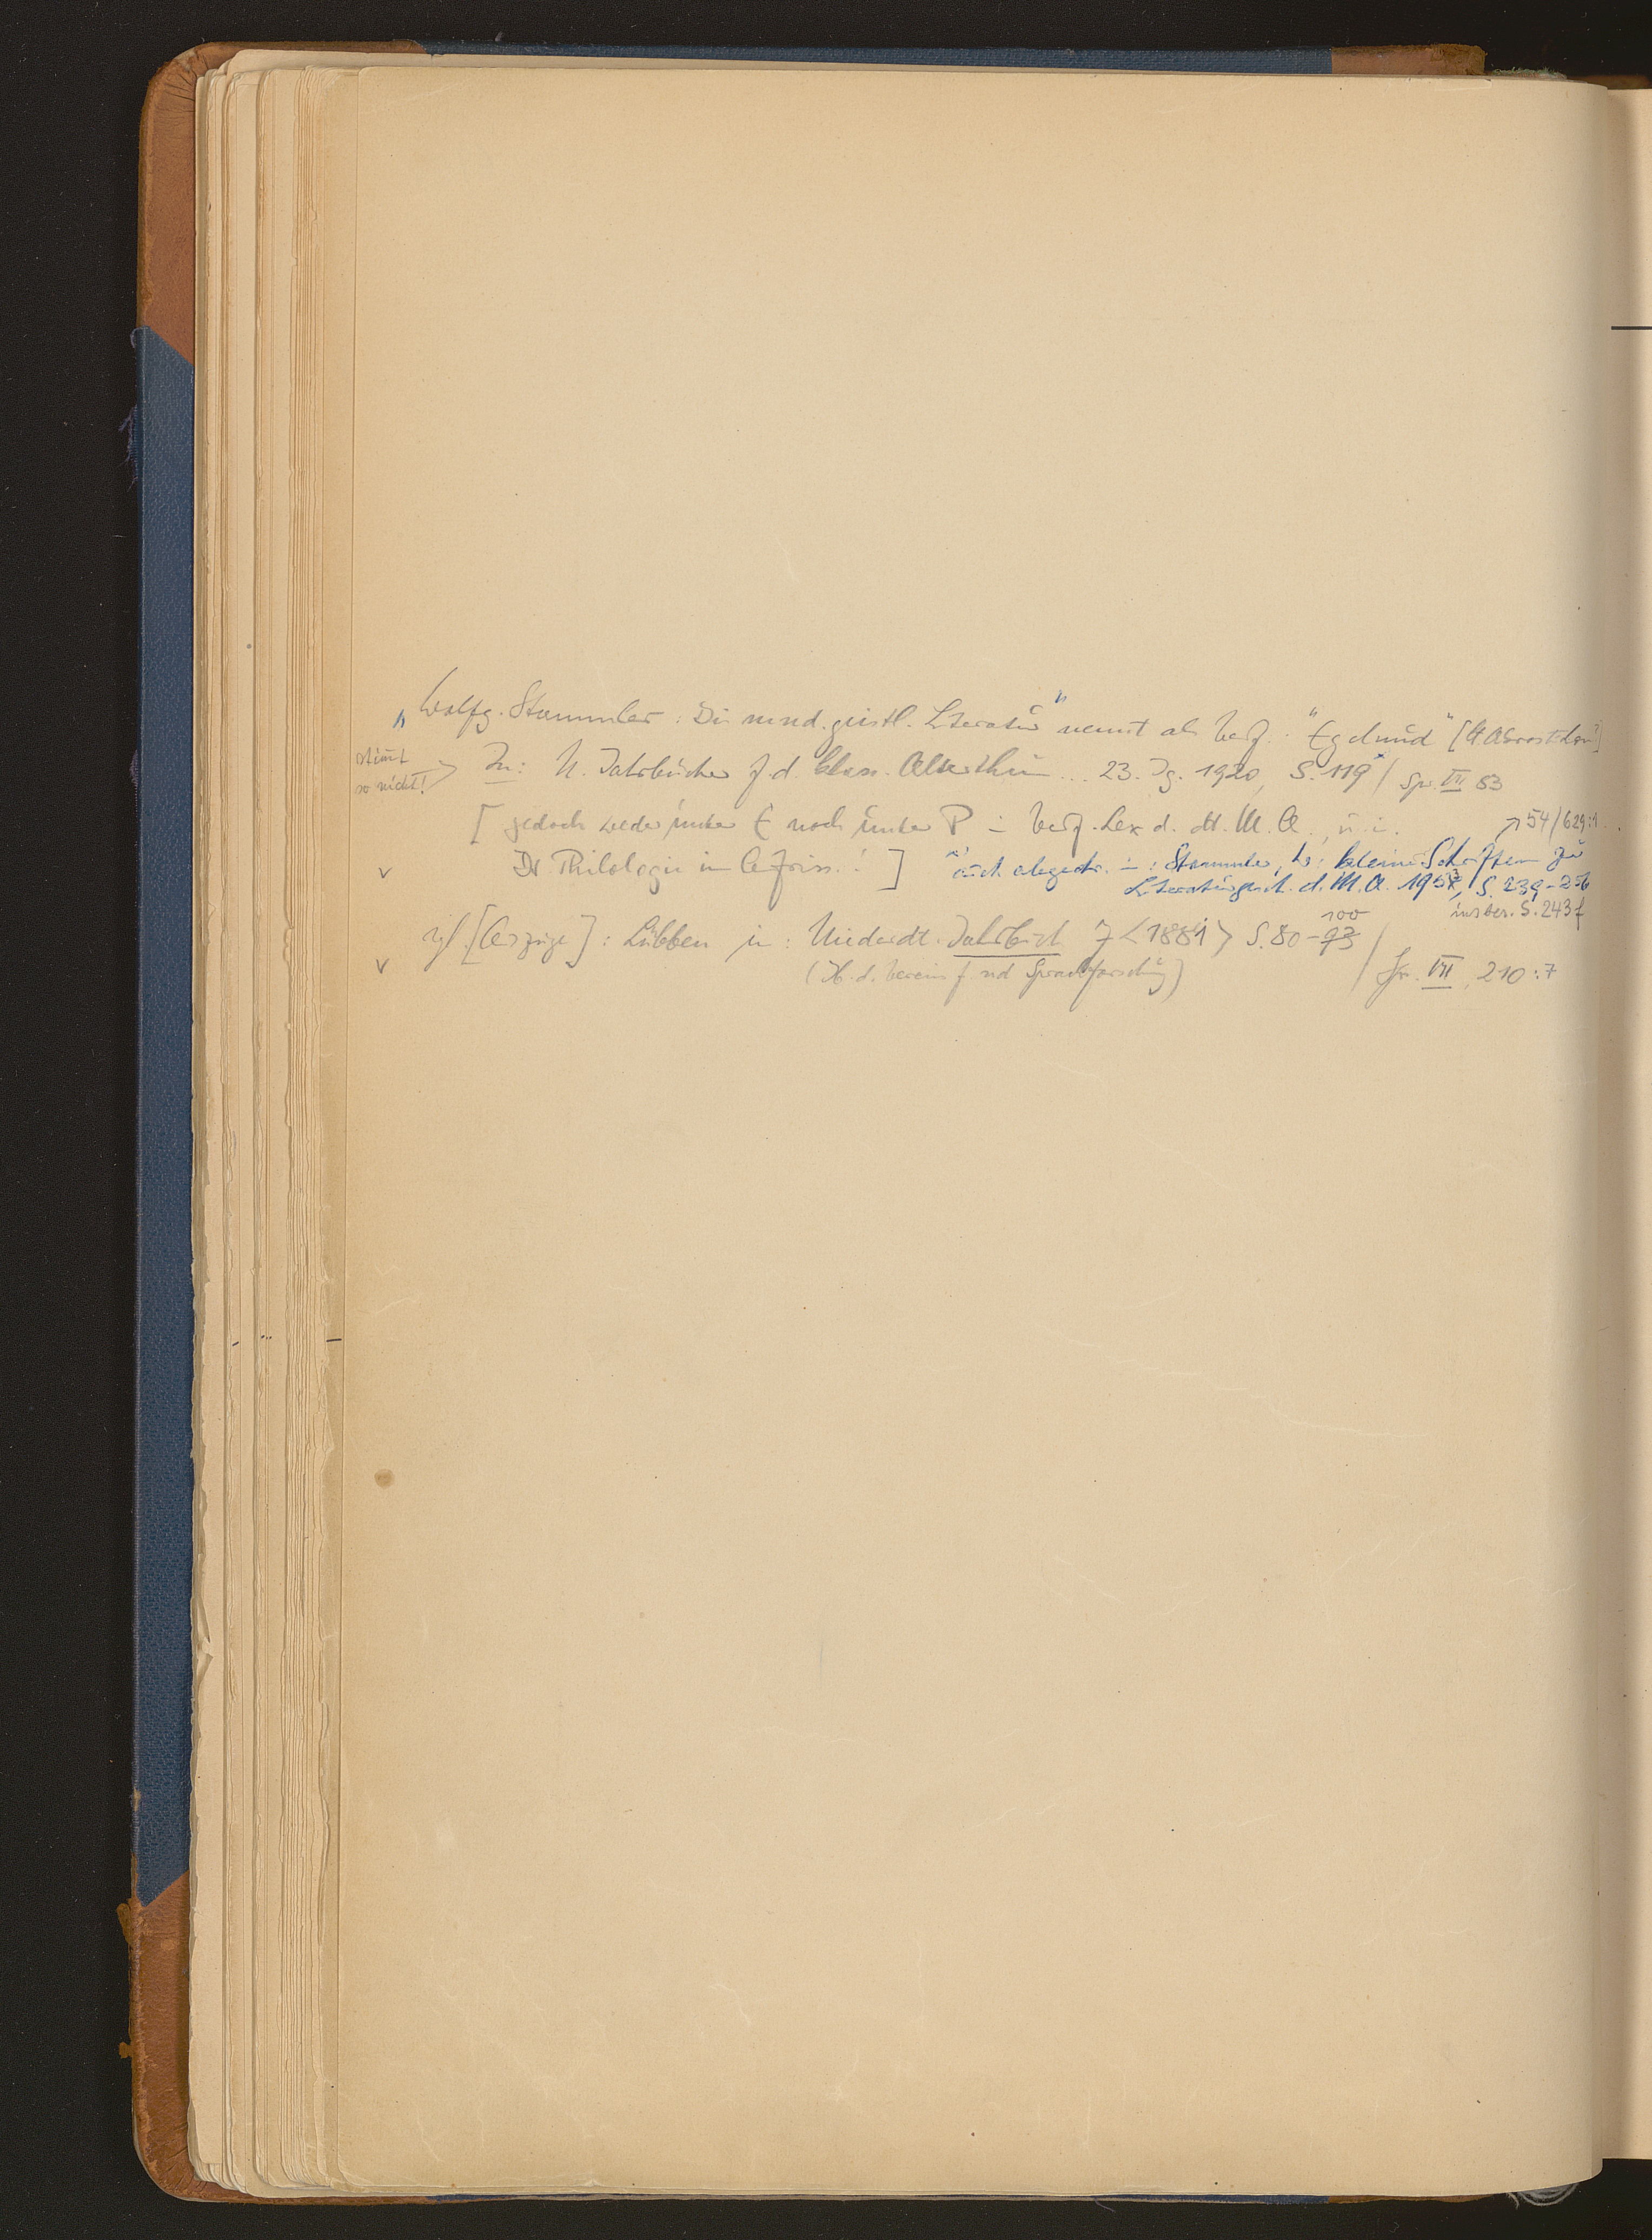 "Wolfg. Stammler: Die mnd. geistl. Literatur" nennt als Verf.: "Egelmud"
stimmt so nicht!
In: N. Jahrbücher f. d. klass. Altertum... 23. Jg. 1920, S. 119 / Sp. VII 53
[jedoch weder unter E noch unter P in Verf. Lex. d. dt. M.A., u. i.
↗ 54/629:1
v Dt. Philologie im Aufriss.!]
auch abgedr. in: Stammler, W.: Kleine Schriften zur
Literaturgesch. d. M.A. 1953, S. 239-256
insbes. S. 243f
v vgl. [Auszüge]: Lübben in: Niederdt. Jahrbuch 7 <1881> S. 80-93 100
(Jb. d. Vereins f. nd Sprachforschung) / Sp. VII, 210:7